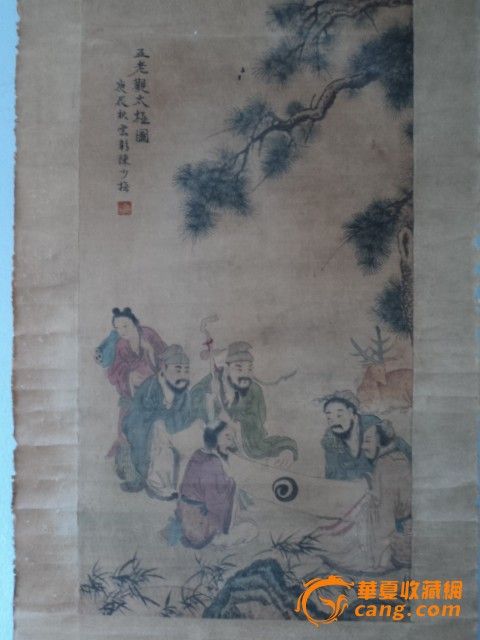 五老觀太極圖
庚辰秋雲彰陳少梅
華夏收藏網
cang.com